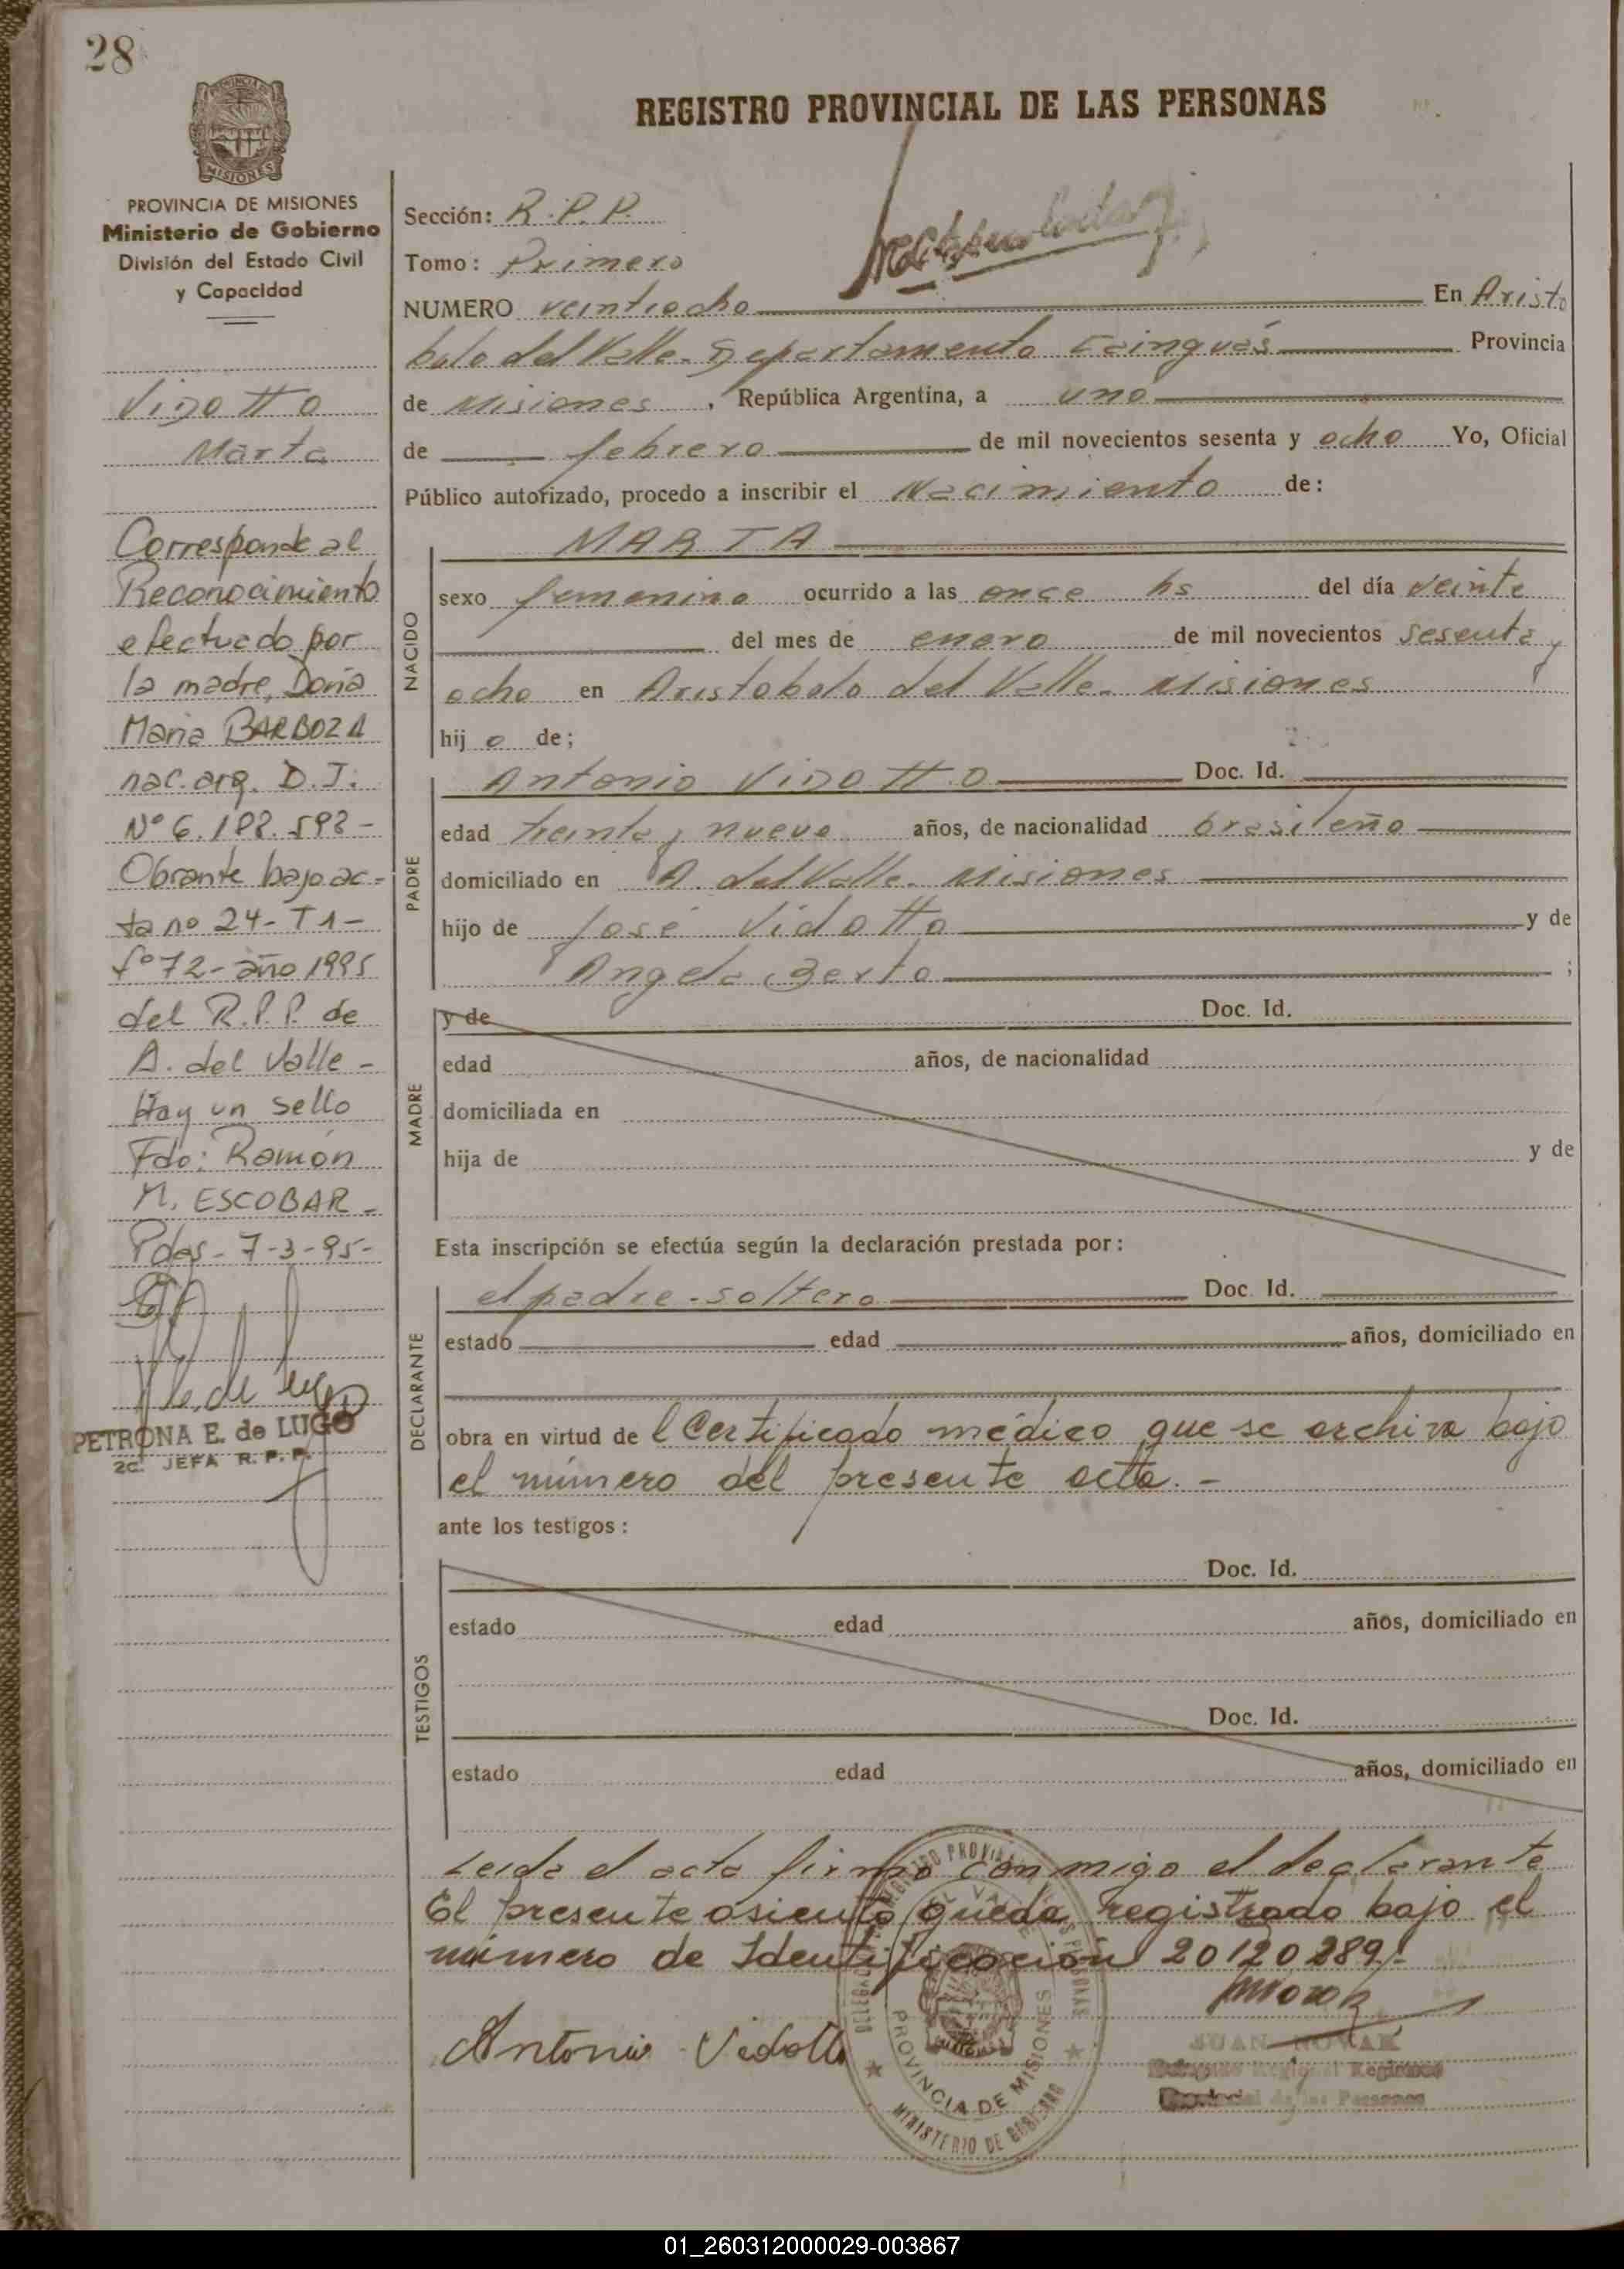 28
REGISTRO PROVINCIAL DE LAS PERSONAS
PROVINCIA DE MISIONES
Ministerio de Gobierno
División del Estado Civil
y Capacidad
Vidotto
Marta
Corresponde al
Reconocimiento
efectuado por
la madre, Doña
Maria BARBOZA
nac. arg. D.I.
Nº 6.188.598-
Obrante bajo ac-
ta nº 24- T1-
fº 72- año 1995
del R.P.P. de
A. del Valle-
Hay un sello
Fdo: Ramón
M. ESCOBAR-
Pdas- 7-3-95-
PETRONA E. de LUGO
JEFA R. P. P.
Sección: R.P.P.
Tomo: Primero
NUMERO veintiocho En Aristo
bulo del Valle- Departamento Cainguás Provincia
de Misiones, República Argentina, a uno
de febrero de mil novecientos sesenta y ocho Yo, Oficial
Público autorizado, procedo a inscribir el Nacimiento de:
NACIDO
MARTA
sexo femenino ocurrido a las once hs del día veinte
del mes de enero de mil novecientos sesenta y
ocho en Aristobulo del Valle- Misiones
hij a de;
PADRE
Antonio VIDOTTO Doc. Id.
edad treinta y nueve años, de nacionalidad brasileño
domiciliado en A. del Valle- Misiones
hijo de José Vidotto y de
Angela Berto ;
MADRE
y de Doc. Id.
edad años, de nacionalidad
domiciliada en
hija de y de
Esta inscripción se efectúa según la declaración prestada por:
DECLARANTE
el padre-soltero Doc. Id.
estado edad años, domiciliado en
obra en virtud de l Certificado médico que se archiva bajo
el número del presente acta.-
ante los testigos:
TESTIGOS
Doc. Id.
estado edad años, domiciliado en
Doc. Id.
estado edad años, domiciliado en
Leida el acta firma conmigo el declarante
El presente asiento queda registrado bajo el
número de Identificación 20120289.-
Antonio Vidotto
JUAN NOVAK
Delegado Regional Registro
Provincial de las Personas
PROVINCIA DE MISIONES
MINISTERIO DE GOBIERNO
01_260312000029-003867